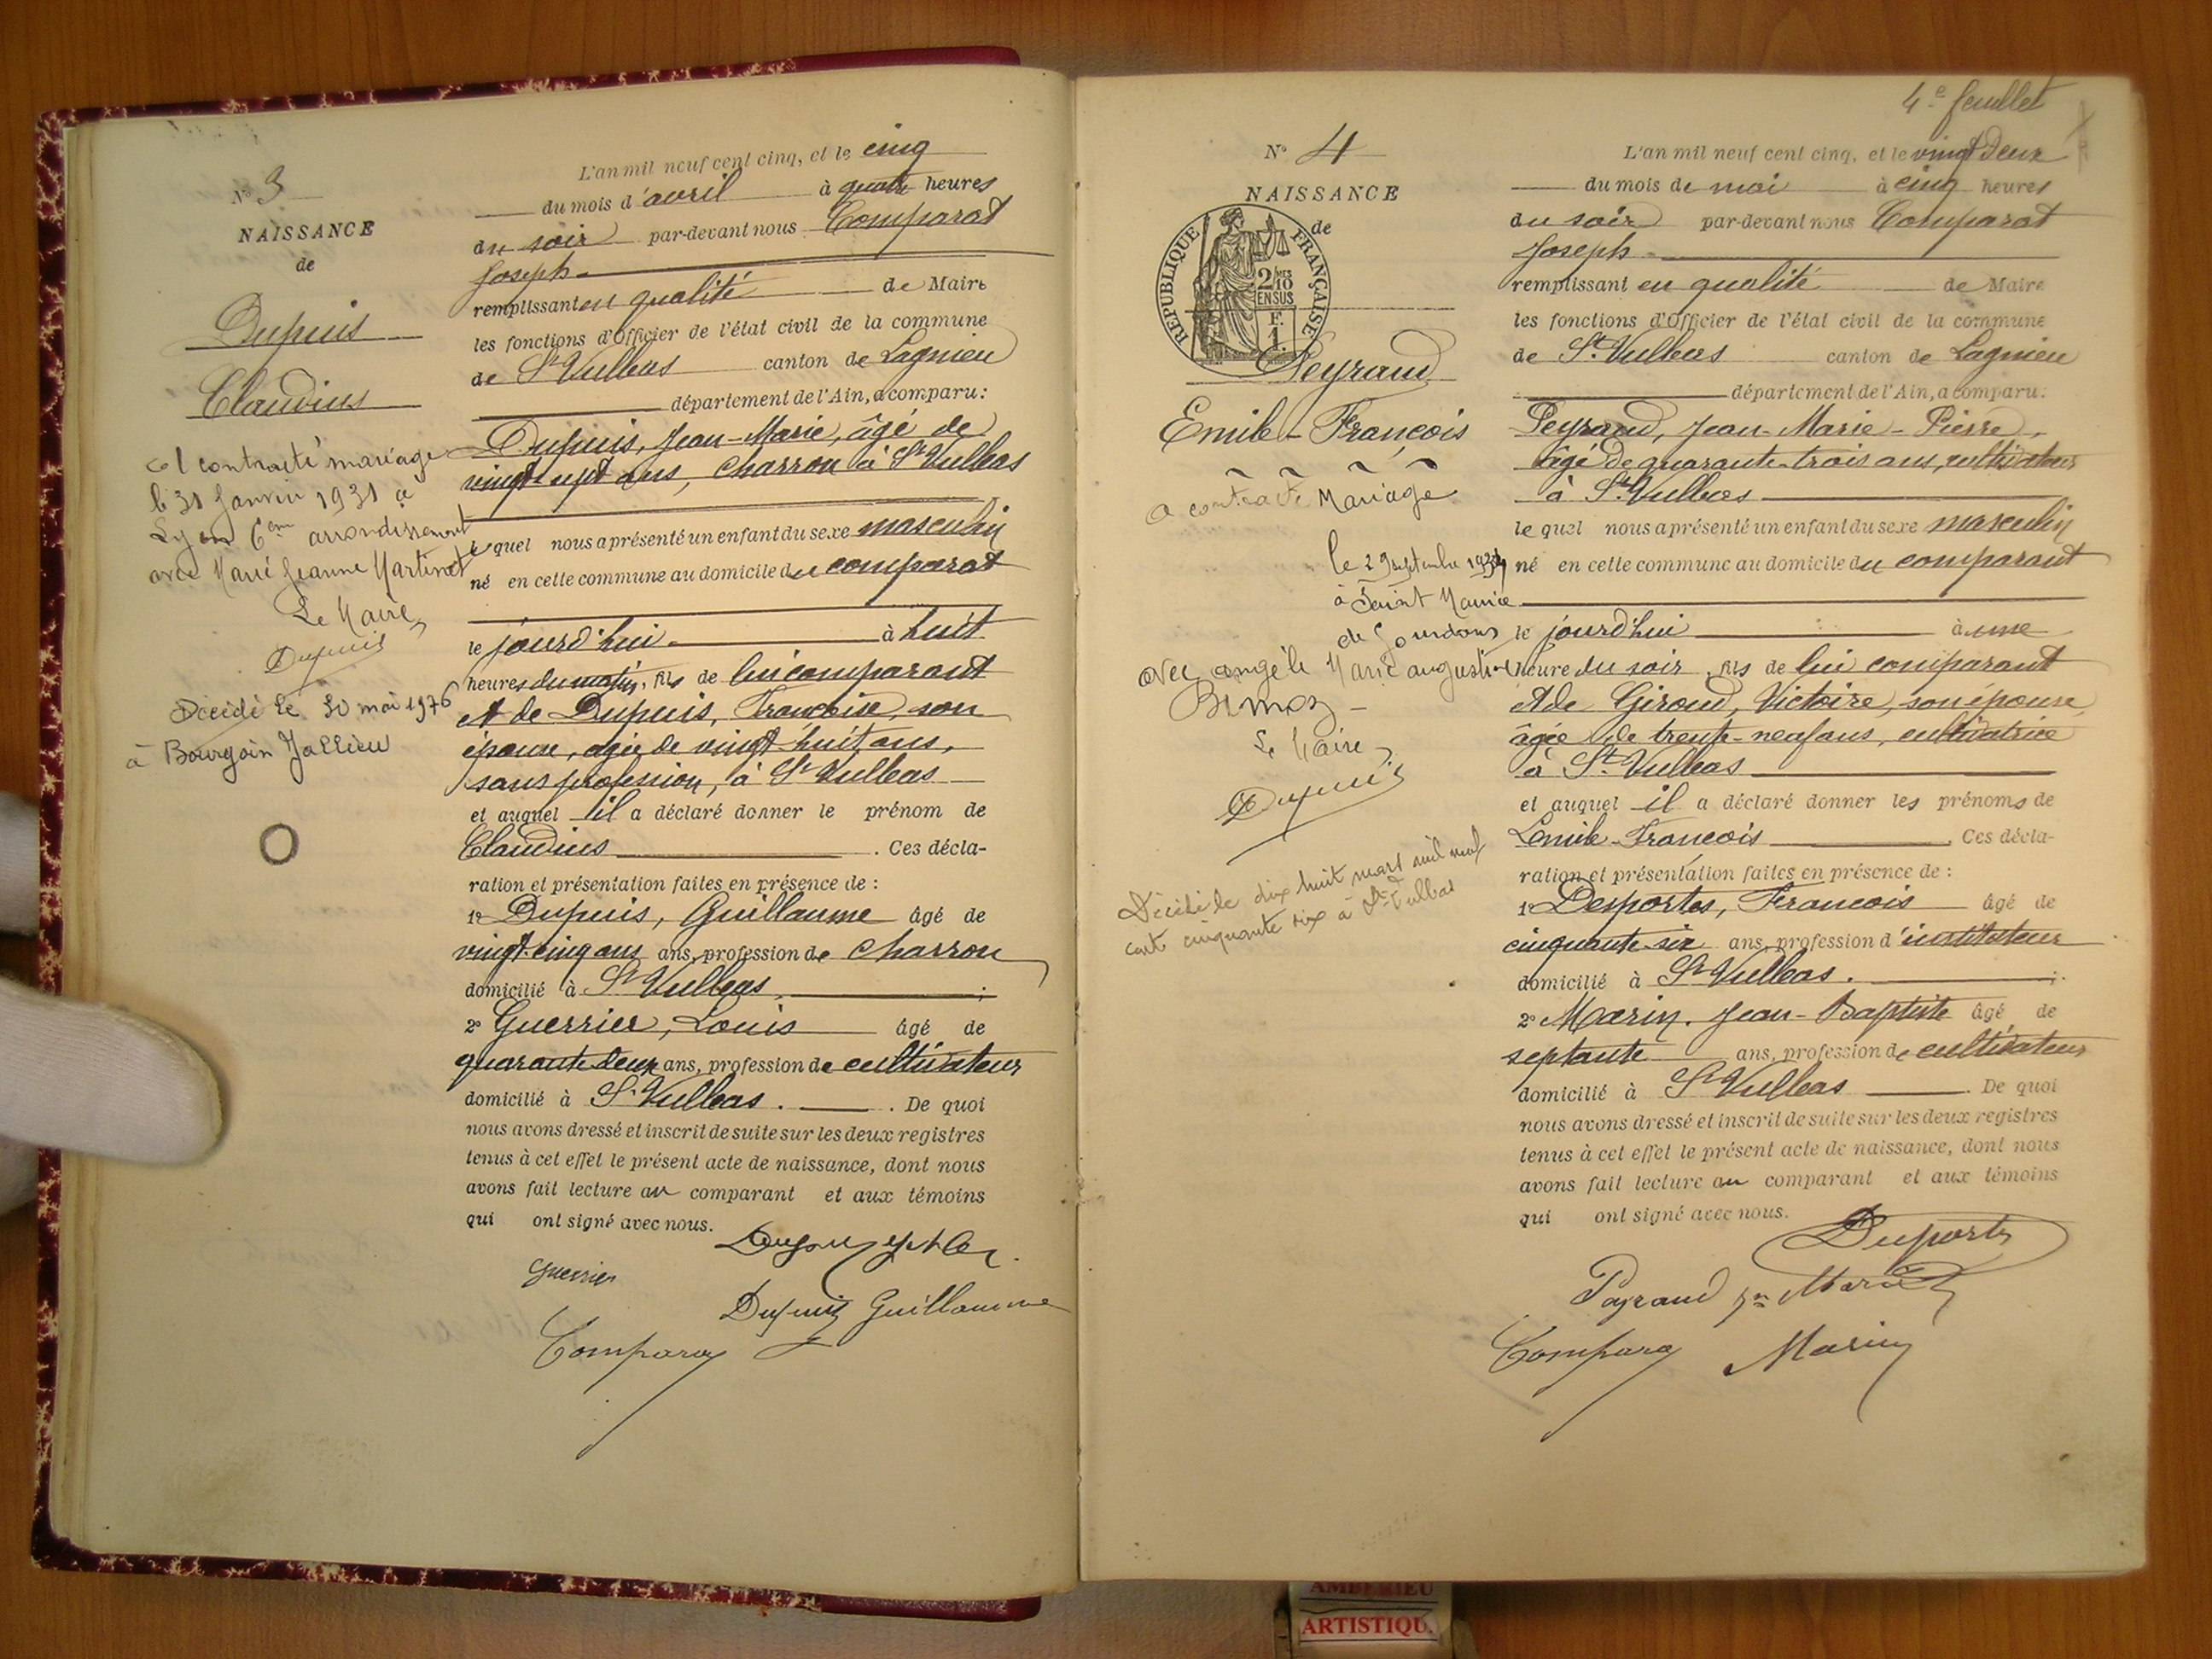 N° 3
NAISSANCE
de
Dupuis
Claudius
a contracté mariage
le 31 Janvin 1931 à
Lyon 6em arrondissement
avec Marie Jeanne Martinet
Le Maire
Dupuis
Décédé le 30 mai 1976
à Bourgoin Jallieu
L'an mil neuf cent cinq, et le cinq
du mois d'avril à quatre heures
du soir par-devant nous Comparat
Joseph
remplissant en qualité de Maire
les fonctions d'Officier de l'état civil de la commune
de St Vulbas canton de Lagnieu
département de l'Ain, a comparu:
Dupuis, Jean-Marie, âgé de
vingt sept ans, charron à St Vulbas
le quel nous a présenté un enfant du sexe masculin
né en cette commune au domicile du comparat
le jourd'hui à huit
heures du matin, fils de lui comparant
et de Dupuis, Francoise, son
épouse, agée de vingt-huit ans,
sans profession, à St Vulbas
et auquel il a déclaré donner le prénom de
Claudius. Ces décla-
ration et présentation faites en présence de :
1° Dupuis, Guillaume âgé de
vingt-cinq ans ans, profession de charron
domicilié à St Vulbas ;
2° Guerrier, Louis âgé de
quarante-deux ans, profession de cultivateur
domicilié à St Vulbas. De quoi
nous avons dressé et inscrit de suite sur les deux registres
tenus à cet effet le présent acte de naissance, dont nous
avons fait lecture au comparant et aux témoins
qui ont signé avec nous.
Guerrier
Dupuis Guillaume
Comparat
4e feuillet
N° 4
NAISSANCE
de
REPUBLIQUE FRANÇAISE
2/10
EN SUS
F.
1.
Peyraud
Emile-François
a contracté Mariage
le 29 septembre
à Saint Maurice
de Gourdans
avec angèle Marie augustine
Le Maire
Dupuis
Décédé le dix huit mars mil neuf
cent cinquante six à St Vulbas
L'an mil neuf cent cinq, et le vingt deux
du mois de mai à cinq heures
du soir par-devant nous Comparat
Joseph
remplissant en qualité de Maire
les fonctions d'Officier de l'état civil de la commune
de St Vulbas canton de Lagnieu
département de l'Ain, a comparu:
Peyraud, Jean-Marie-Pierre,
âgé de quarante-trois ans, cultivateur
à St Vulbas
le quel nous a présenté un enfant du sexe masculin
né en cette commune au domicile du comparant
le jourd'hui à une
heure du soir, fils de lui comparant
et de Giroud, Victoire, son épouse,
âgée de trente-neuf ans, cultivatrice
à St Vulbas
et auquel il a déclaré donner les prénoms de
Emile-François. Ces décla-
ration et présentation faites en présence de :
1° Desportes, Francois âgé de
cinquante-six ans, profession d'instituteur
domicilié à St Vulbas. ;
2° Marin, Jean-Baptiste âgé de
septante ans, profession de cultivateur
domicilié à St Vulbas. De quoi
nous avons dressé et inscrit de suite sur les deux registres
tenus à cet effet le présent acte de naissance, dont nous
avons fait lecture au comparant et aux témoins
qui ont signé avec nous.
Desportes
Payraud jn Marie
Comparat Marin
AMBERIEU
ARTISTIQU